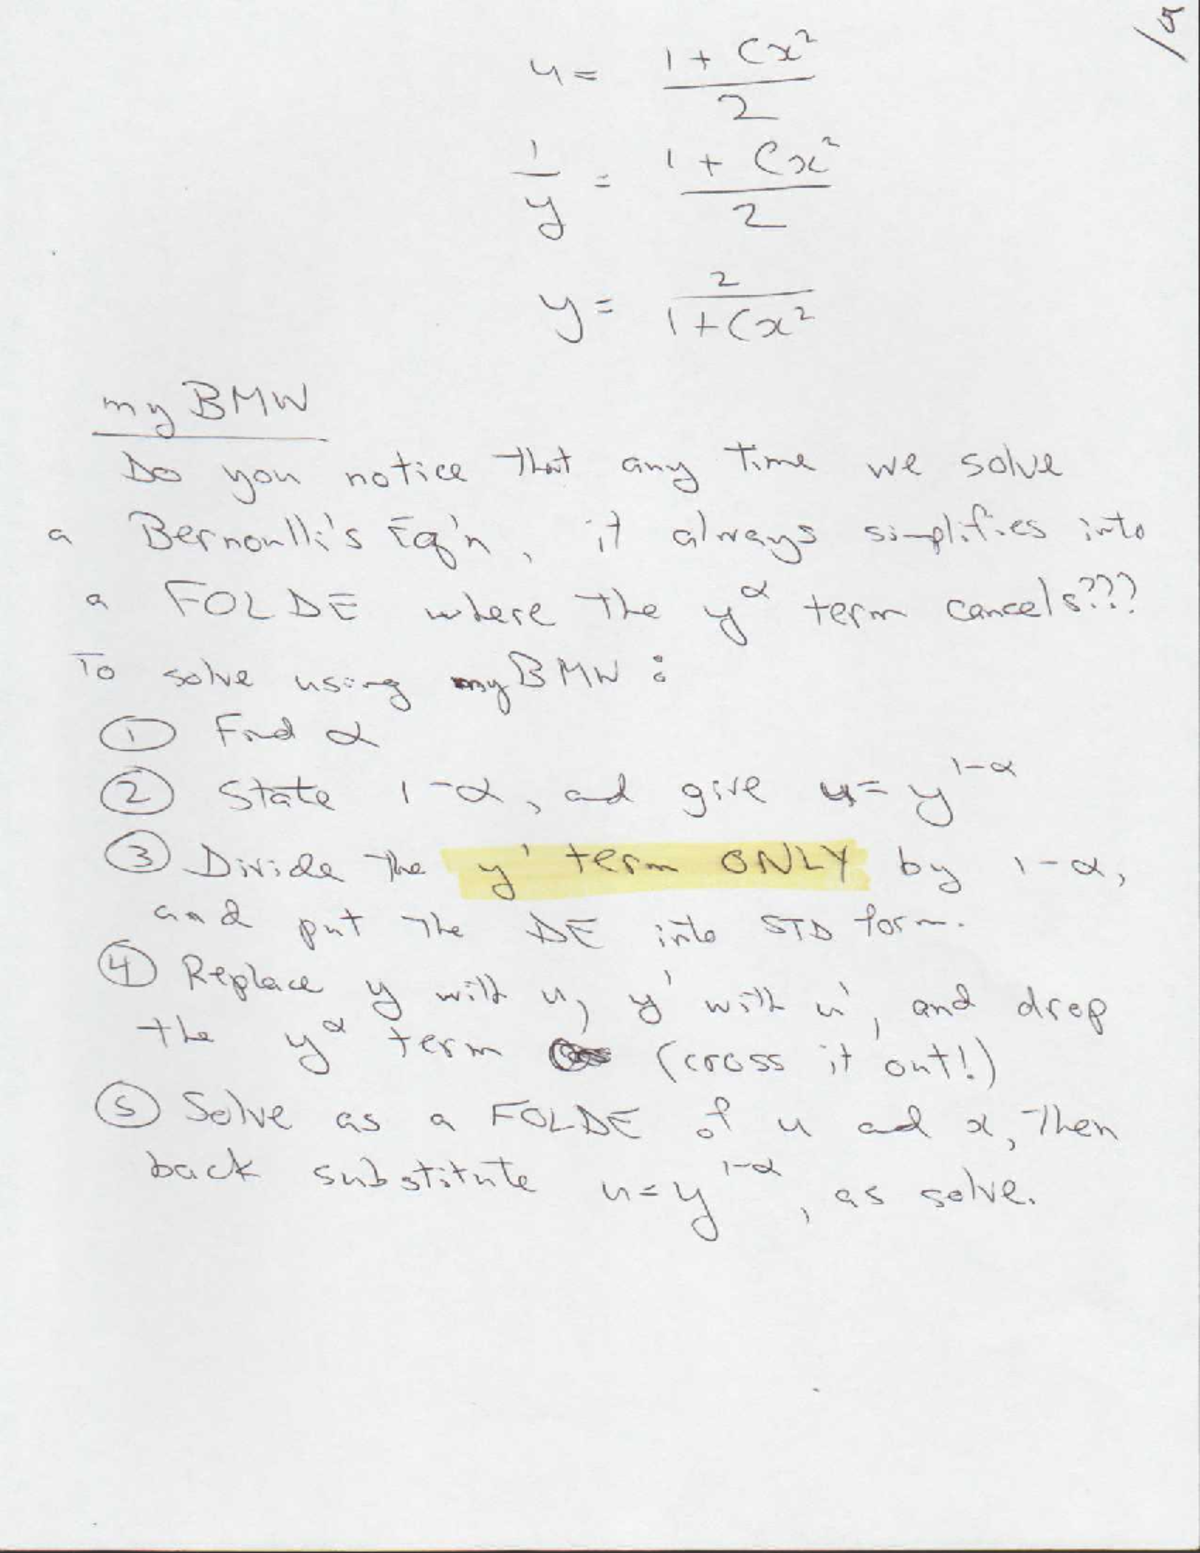 u = (1 + Cx²)/2
1/y = (1 + Cx²)/2
y = 2/(1 + Cx²)
my BMW
Do you notice that any time we solve
a Bernoulli's Eq'n, it always simplifies into
a FOLDE where the y^α term cancels???
To solve using my BMW:
① Find α
② State 1-α, and give u = y^(1-α)
③ Divide the y' term ONLY by 1-α,
and put the DE into STD form.
④ Replace y with u, y' with u', and drop
the y^α term (cross it out!)
⑤ Solve as a FOLDE of u and x, then
back substitute u = y^(1-α), as solve.